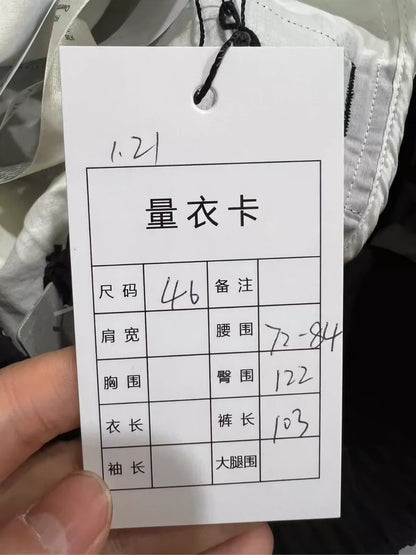 1.21
量衣卡
尺码 46 备注
肩宽 腰围 72-84
胸围 臀围 122
衣长 裤长 103
袖长 大腿围